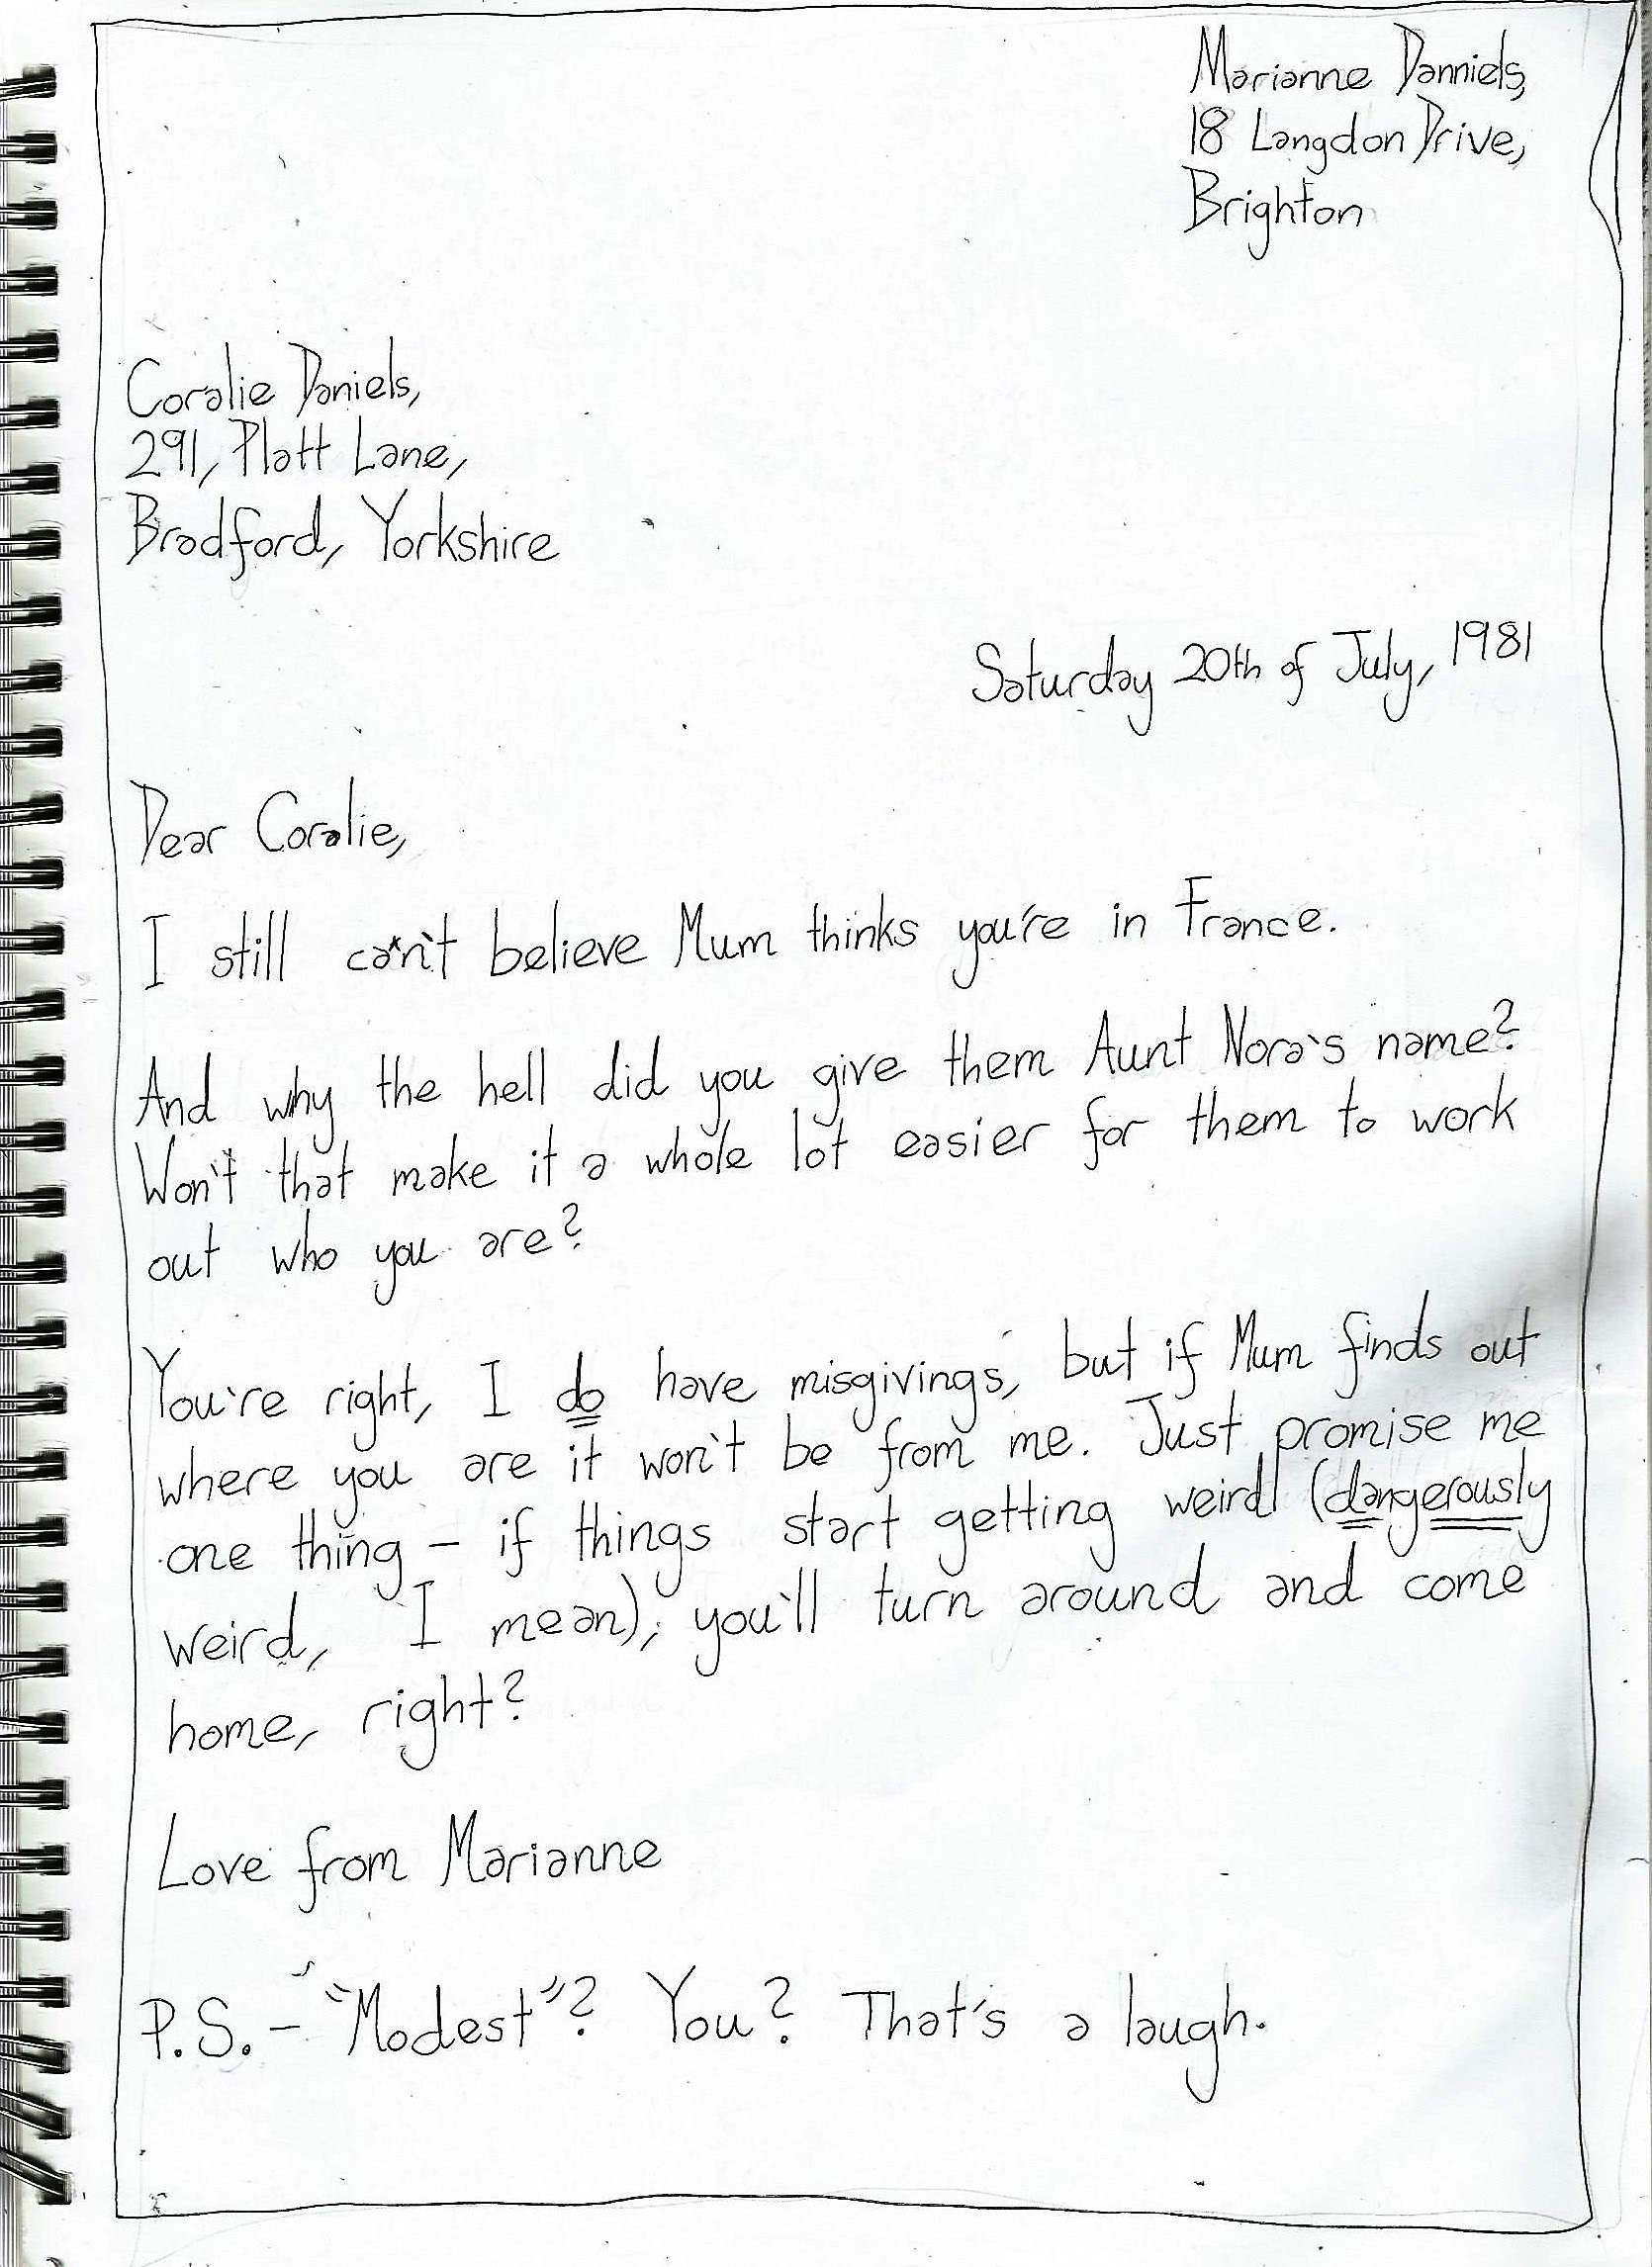 Marianne Danniels,
18 Langdon Drive,
Brighton
Coralie Daniels,
291, Platt Lane,
Bradford, Yorkshire
Saturday 20th of July, 1981
Dear Coralie,
I still can't believe Mum thinks you're in France.
And why the hell did you give them Aunt Nora's name?
Won't that make it a whole lot easier for them to work
out who you are?
You're right, I do have misgivings, but if Mum finds out
where you are it won't be from me. Just promise me
one thing - if things start getting weird (dangerously
weird, I mean), you'll turn around and come
home, right?
Love from Marianne
P.S. - "Modest"? You? That's a laugh.